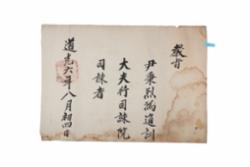 敎旨
尹秉烈爲通訓
大夫行司諫院
司諫者
道光六年八月初四日